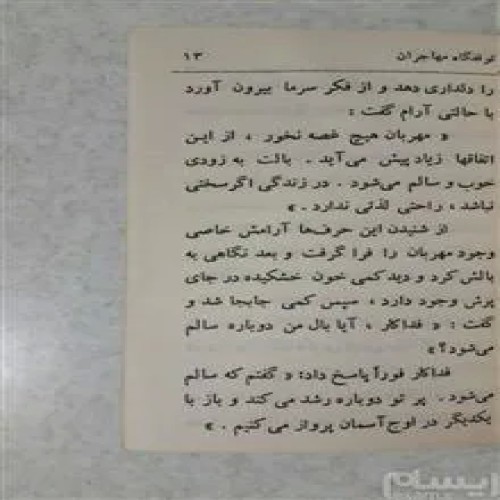 توقفگاه مهاجران ۱۳
را دلداری دهد و از فکر سرما بیرون آورد
با حالتی آرام گفت :
« مهربان هیچ غصه نخور ، از این
اتفاقها زیاد پیش می‌آید . بالت به زودی
خوب و سالم می‌شود . در زندگی اگر سختی
نباشد ، راحتی لذتی ندارد . »
از شنیدن این حرف‌ها آرامش خاصی
وجود مهربان را فرا گرفت و بعد نگاهی به
بالش کرد و دید کمی خون خشکیده در جای
پرش وجود دارد ، سپس کمی جابجا شد و
گفت : « فداکار ، آیا بال من دوباره سالم
می‌شود؟ »
فداکار فوراً پاسخ داد: « گفتم که سالم
می‌شود . پر تو دوباره رشد می‌کند و باز با
یکدیگر در اوج آسمان پرواز می‌کنیم . »
ایسام